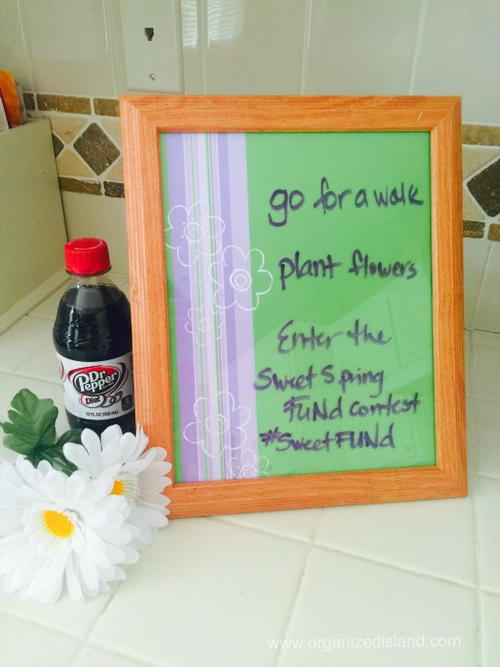 go for a walk
plant flowers
Enter the
Sweet Spring
FUNd Contest
#SweetFUNd
Dr
Pepper
Diet
www.organizedisland.com